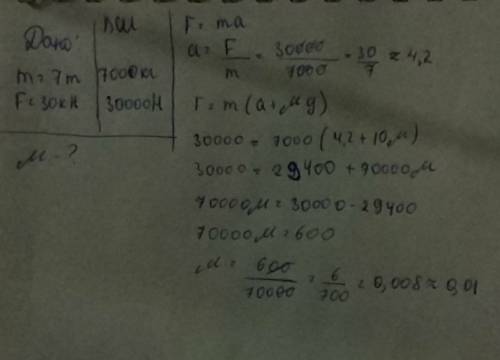 Дано:
m = 7т
F = 30кН
μ - ?
СИ
7000кг
30000Н
F = ma
a = F/m = 30000/7000 = 30/7 ≈ 4,2
F = m(a + μg)
30000 = 7000(4,2 + 10μ)
30000 = 29400 + 70000μ
70000μ = 30000 - 29400
70000μ = 600
μ = 600/70000 = 6/700 = 0,008 ≈ 0,01